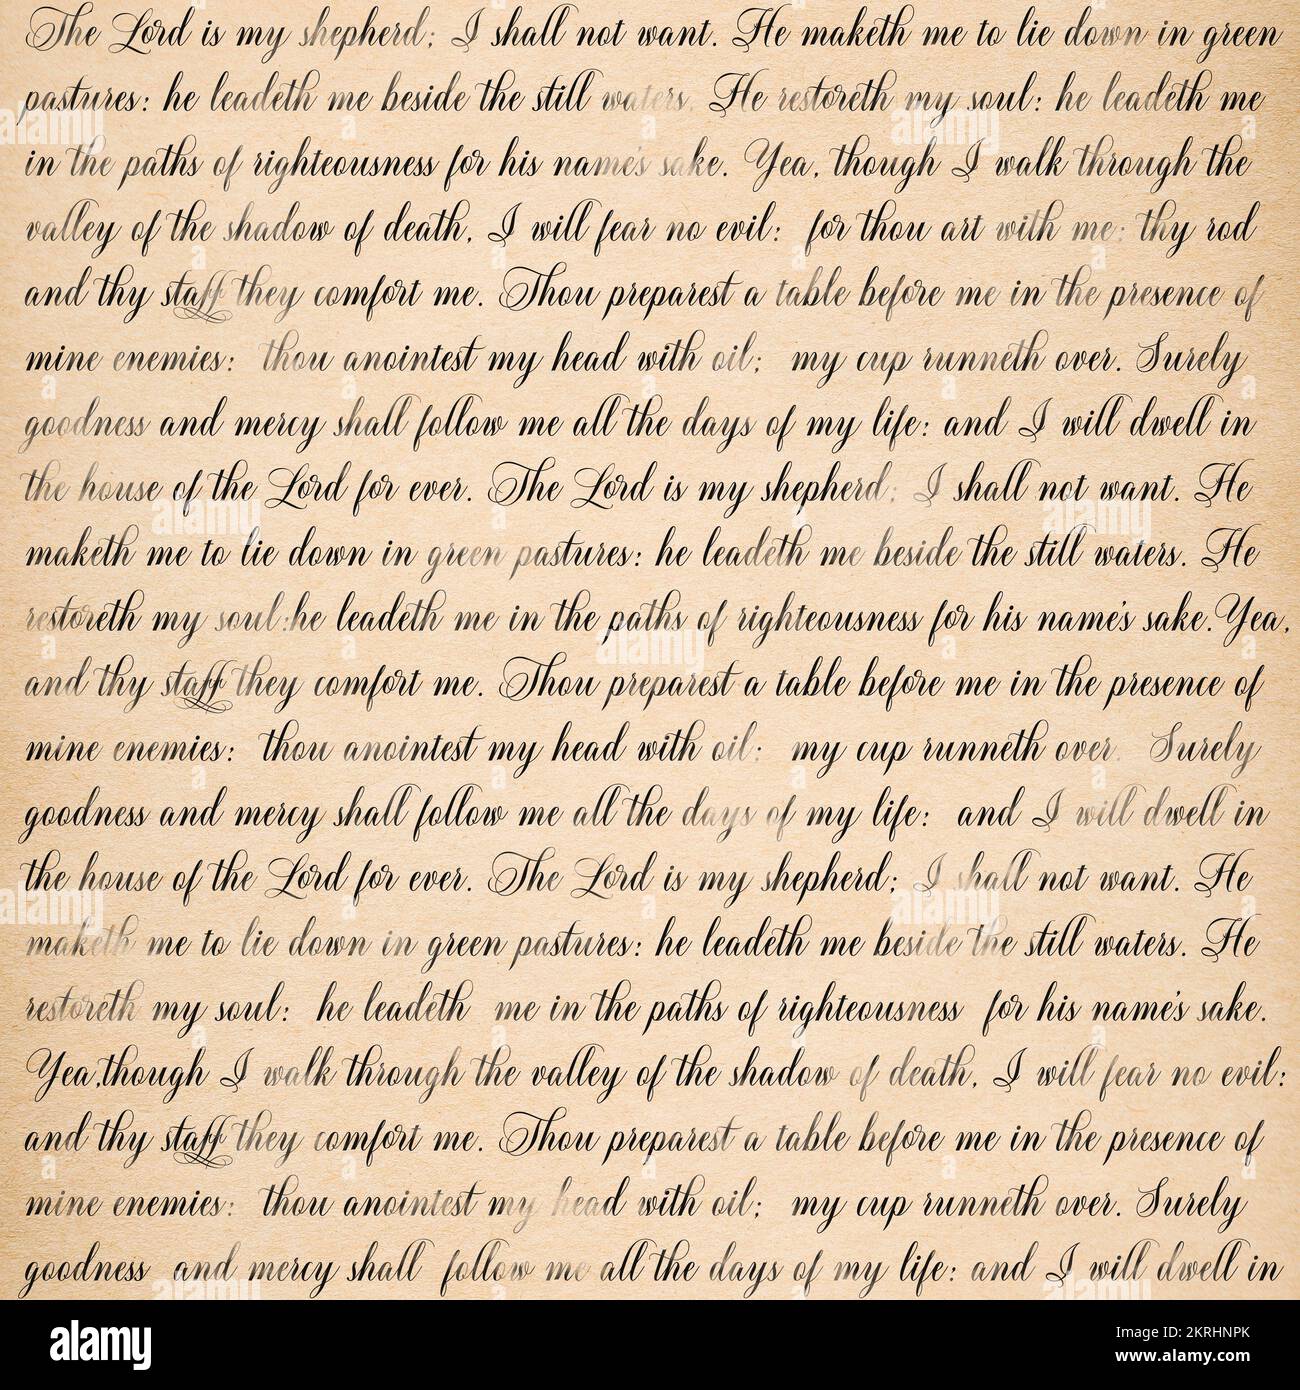 The Lord is my shepherd; I shall not want. He maketh me to lie down in green
pastures: he leadeth me beside the still waters. He restoreth my soul: he leadeth me
in the paths of righteousness for his name's sake. Yea, though I walk through the
valley of the shadow of death, I will fear no evil: for thou art with me; thy rod
and thy staff they comfort me. Thou preparest a table before me in the presence of
mine enemies: thou anointest my head with oil; my cup runneth over. Surely
goodness and mercy shall follow me all the days of my life: and I will dwell in
the house of the Lord for ever. The Lord is my shepherd; I shall not want. He
maketh me to lie down in green pastures: he leadeth me beside the still waters. He
restoreth my soul:he leadeth me in the paths of righteousness for his name's sake.Yea,
and thy staff they comfort me. Thou preparest a table before me in the presence of
mine enemies: thou anointest my head with oil: my cup runneth over. Surely
goodness and mercy shall follow me all the days of my life: and I will dwell in
the house of the Lord for ever. The Lord is my shepherd; I shall not want. He
maketh me to lie down in green pastures: he leadeth me beside the still waters. He
restoreth my soul: he leadeth me in the paths of righteousness for his name's sake.
Yea,though I walk through the valley of the shadow of death, I will fear no evil:
and thy staff they comfort me. Thou preparest a table before me in the presence of
mine enemies: thou anointest my head with oil; my cup runneth over. Surely
goodness and mercy shall follow me all the days of my life: and I will dwell in
alamy
Image ID: 2KRHNPK
www.alamy.com